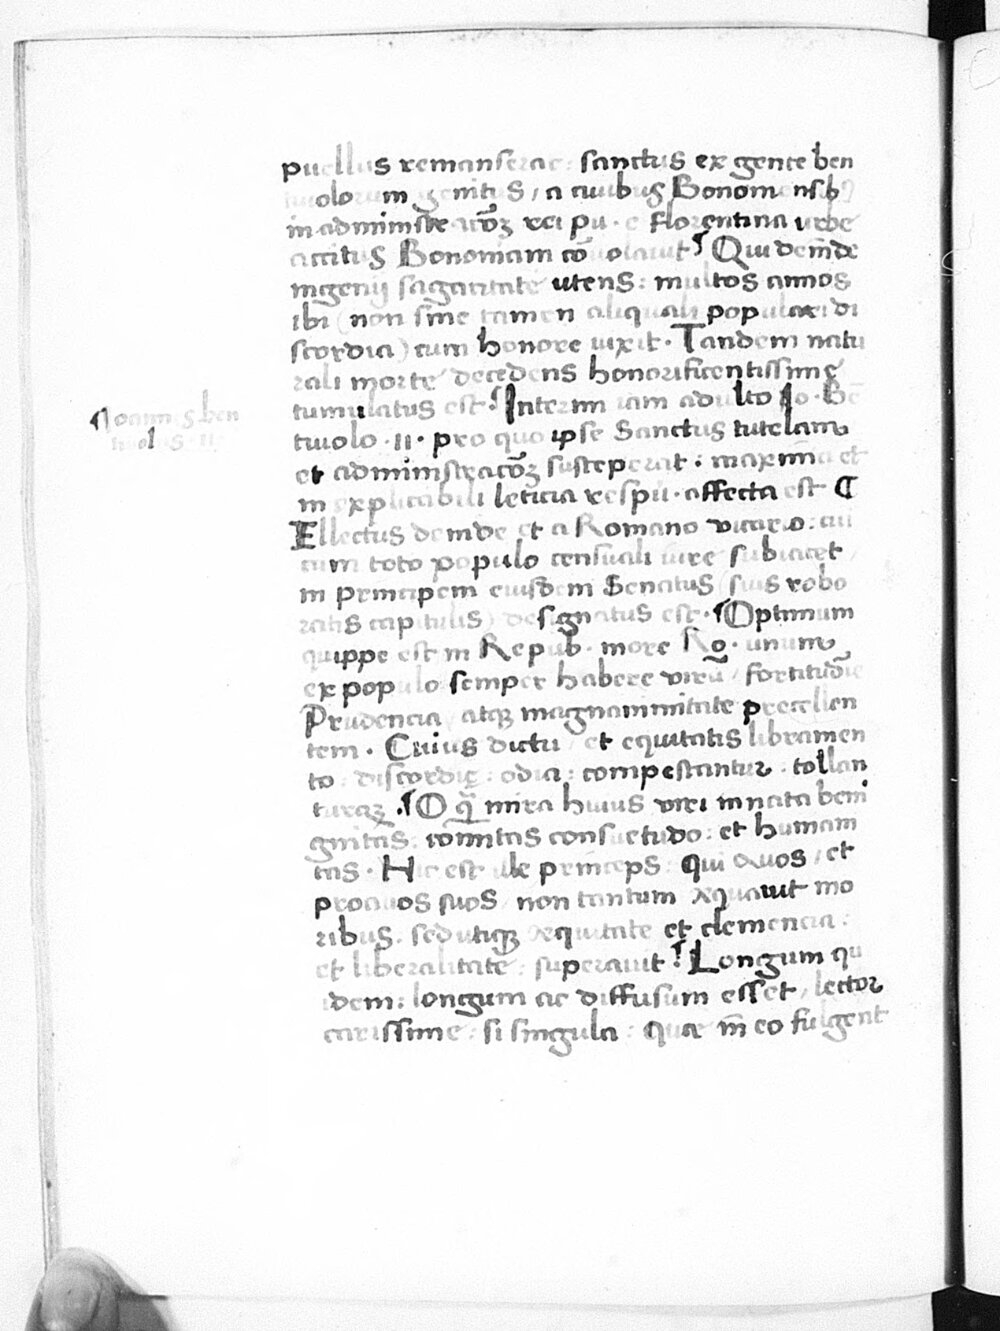 puellus remanserat: sanctus ex gente ben
tiuolorum genitus, a ciuibus Bononiensibꝫ
in administracōꝫ rei pu. e florentina urbe
accitus Bononiam cōuolauit ¶ Qui dein̄de
ingenij sagacitate utens: multos annos
ibi (non sine tamen aliquali populari di
scordia) cum honore uixit. Tandem natu
rali morte decedens honorificentissime
tumulatus est. ¶ Interim iam adulto Io. Bē
tiuolo .II. pro quo ipse Sanctus tutelam
et administracōꝫ susceperat: maxima et
inexplicabili leticia respu. affecta est ¶
Ellectus deinde et a Romano vicario: cui
cum toto populo censuali iure subiacet,
in principem eiusdem Senatus (suis robo
ratis capitulis) designatus est. ¶ Optimum
quippe est in Repub. more Ro. unum
ex populo semper habere virū, fortitudīe
Prudencia, atqꝫ magnanimitate precellen
tem. Cuius dictu, et equitatis libramen
to: discordię: odia: compestantur: tollan
turqꝫ. ¶ O q̄ mira huius viri innata beni
gnitas: comitas consuetudo: et humani
tas. Hic est ille princeps: qui auos, et
proauos suos, non tantum æquauit mo
ribus. sed utiqꝫ æquitate et clemencia:
et liberalitate: superauit. ¶ Longum qu
idem: longum ac diffusum esset, lector
carissime: si singula: quæ in̄ eo fulgent
¶ Ioannes ben
tiuolus .II.